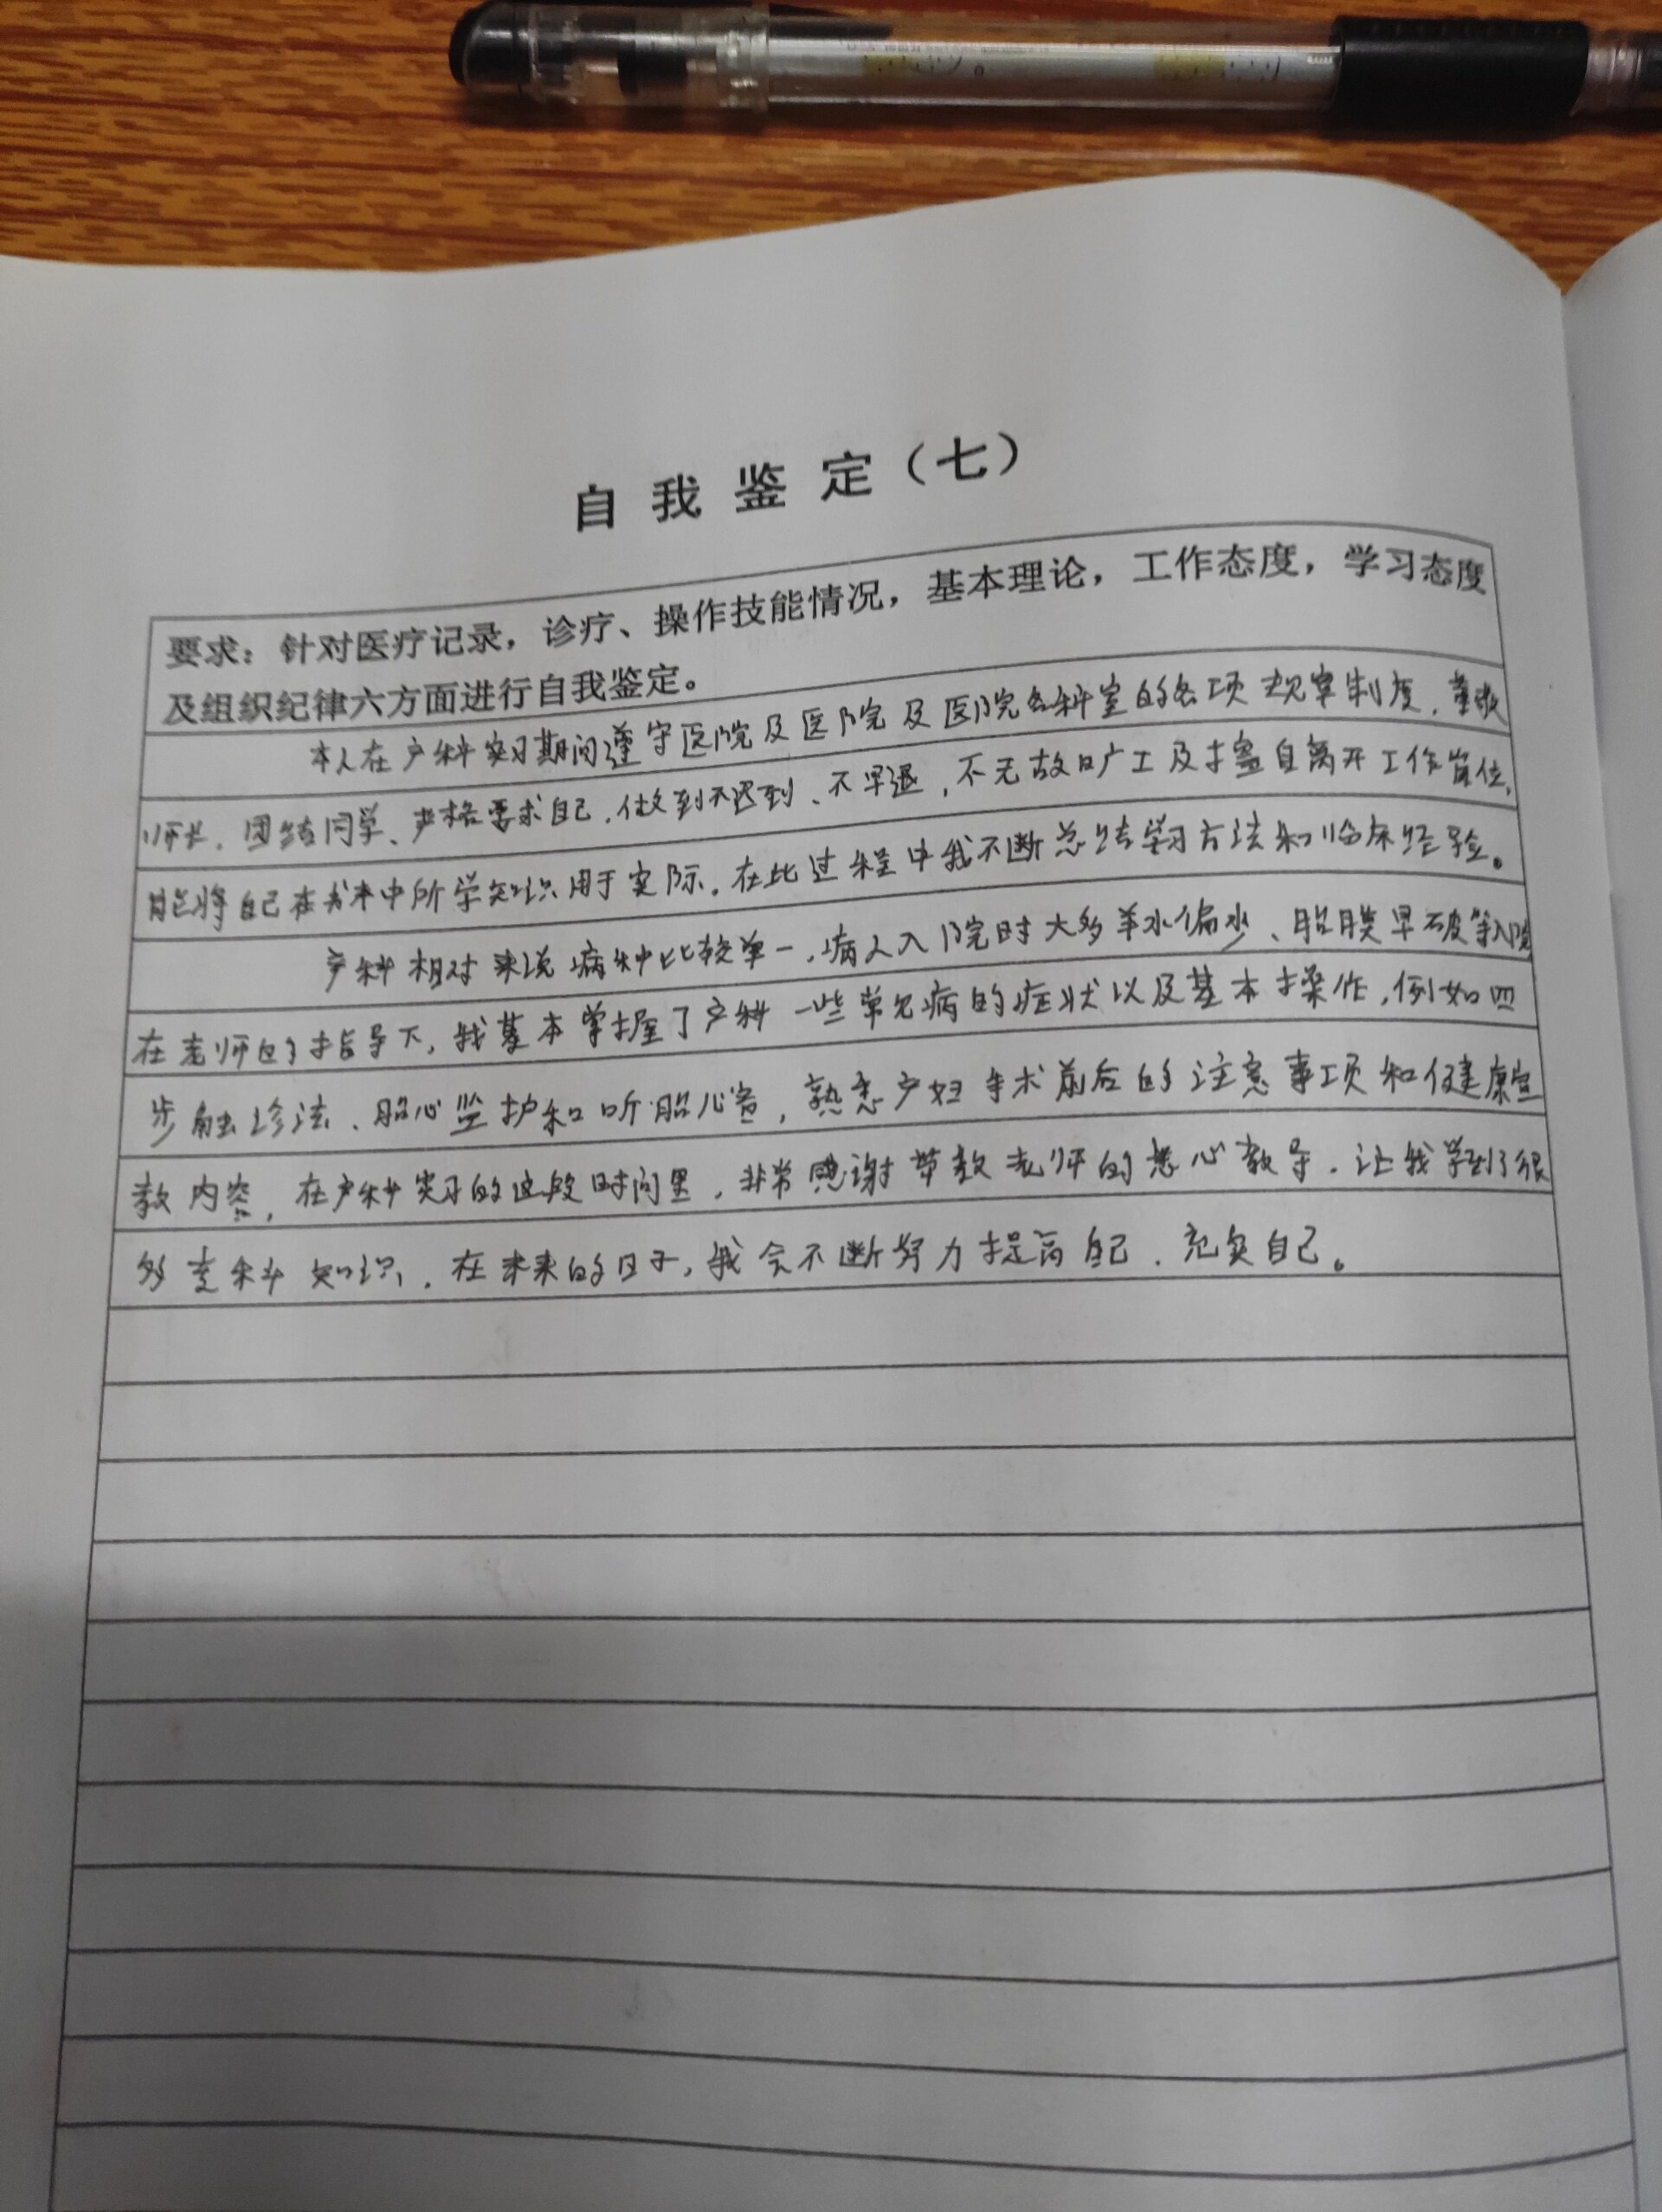 自我鉴定（七）
要求：针对医疗记录，诊疗、操作技能情况，基本理论，工作态度，学习态度
及组织纪律六方面进行自我鉴定。
本人在产科实习期间遵守医院及医院及医院各科室的各项规章制度，尊敬
师长、团结同学、严格要求自己，做到不迟到、不早退，不无故旷工及擅自离开工作岗位，
能将自己在书本中所学知识用于实际。在此过程中我不断总结学习方法和临床经验。
产科相对来说病种比较单一，病人入院时大多羊水偏少、胎膜早破等入院
在老师的指导下，我基本掌握了产科一些常见病的症状以及基本操作，例如四
步触诊法、胎心监护和听胎心音，熟悉产妇手术前后的注意事项和健康宣
教内容，在产科实习的这段时间里，非常感谢带教老师的悉心教导，让我学到了很
多专科知识，在未来的日子，我会不断努力提高自己、充实自己。